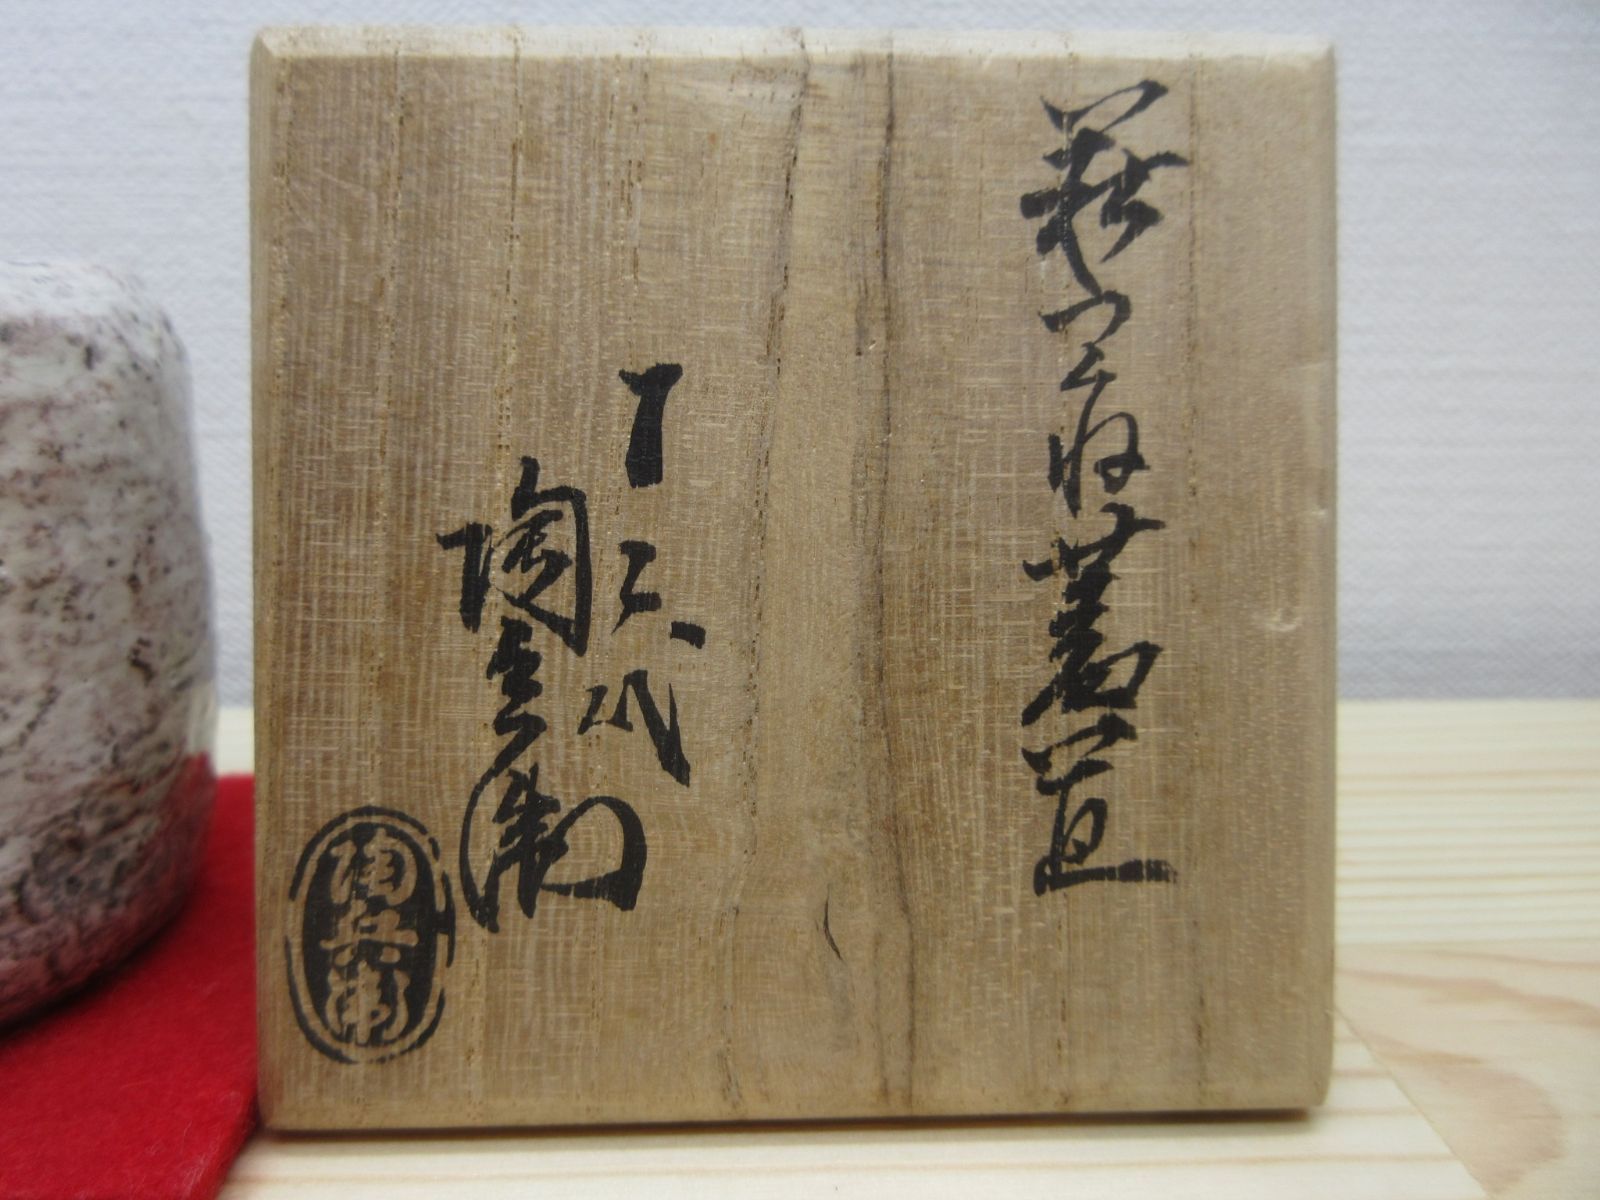 萩つくね蓋置
十二代
陶兵衛
陶兵衛